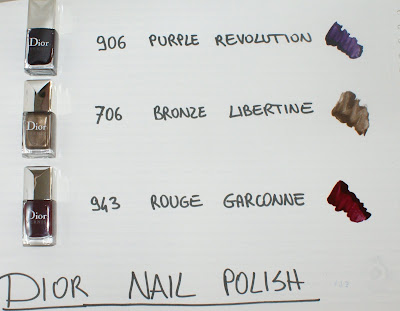 Dior 906 PURPLE REVOLUTION
Dior 706 BRONZE LIBERTINE
Dior 943 ROUGE GARCONNE
DIOR NAIL POLISH